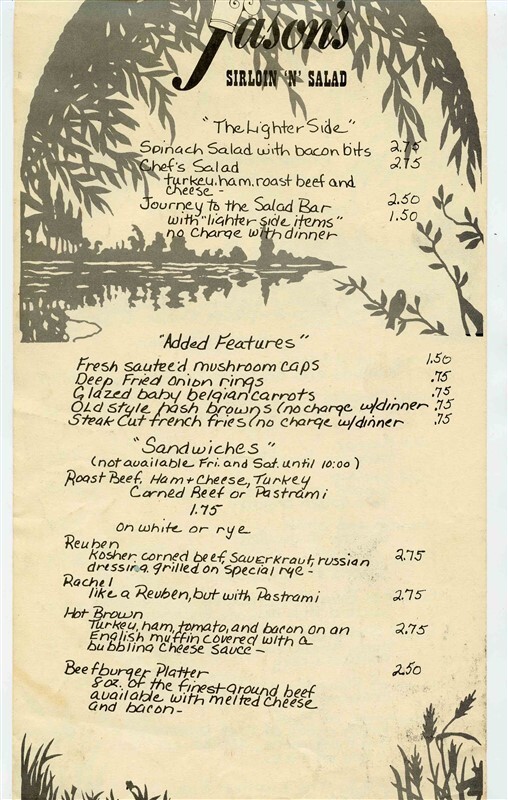 Jason's
SIRLOIN 'N' SALAD
"The Lighter Side"
Spinach Salad with bacon bits 2.75
Chef's Salad 2.75
turkey, ham, roast beef and
cheese -
Journey to the Salad Bar 2.50
with "lighter side items" 1.50
no charge with dinner
"Added Features"
Fresh sauteé'd mushroom caps 1.50
Deep Fried onion rings .75
Glazed baby belgian carrots .75
Old style hash browns (no charge w/dinner .75
Steak Cut french fries (no charge w/dinner .75
"Sandwiches"
(not available Fri. and Sat. until 10:00)
Roast Beef, Ham + Cheese, Turkey
Corned Beef or Pastrami
1.75
on white or rye
Reuben
kosher corned beef, sauerkraut, russian 2.75
dressing, grilled on special rye -
Rachel
like a Reuben, but with Pastrami 2.75
Hot Brown
Turkey, ham, tomato, and bacon on an 2.75
English muffin covered with a
bubbling cheese sauce -
Beefburger Platter 2.50
8 oz. of the finest ground beef
available with melted cheese
and bacon -